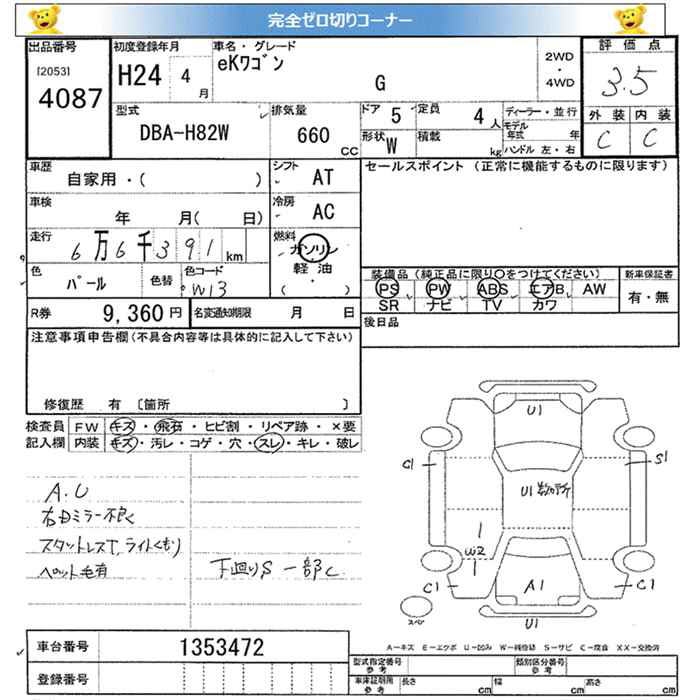 完全ゼロ切りコーナー
出品番号
[2053]
4087
初度登録年月
H24 4
月
車名・グレード
eKワゴン
G
2WD
・
4WD
評価点
3.5
外装 内装
C C
型式
DBA-H82W
排気量
660
CC
ドア 5
定員 4
人
形状 W
積載
kg
ディーラー・並行
モデル
年式 年
ハンドル 左・右
車歴
自家用・( )
シフト
AT
車検
年 月( 日)
冷房
AC
走行
6万6千391 km
燃料
ガソリン
軽油
・
( )
色
パール
色替
色コード
W13
R券
9,360 円
名変通知期限 月 日
セールスポイント (正常に機能するものに限ります)
装備品(純正品に限り○をつけてください)
PS PW ABS エアB AW
SR ナビ TV カワ
新車保証書
有・無
後日品
注意事項申告欄(不具合内容等は具体的に記入して下さい)
修復歴 有 〔箇所 〕
検査員
記入欄
FW キズ・飛石・ヒビ割・リペア跡・×要
内装 キズ・汚レ・コゲ・穴・スレ・キレ・破レ
A.U
右Dミラー不良
スタットレスT,ライトくもり
ペット毛有
下廻りS 一部C
U1
C1
S1
U1 数ヶ所
U2
C1
A1
C1
U1
スペア
A-キズ E-エクボ U-凹み W-補修跡 S-サビ C-腐食 XX-交換済
車台番号 1353472
登録番号
型式指定番号
参考
類別区分番号
参考
車庫証明用
参考
長さ cm
幅 cm
高さ cm